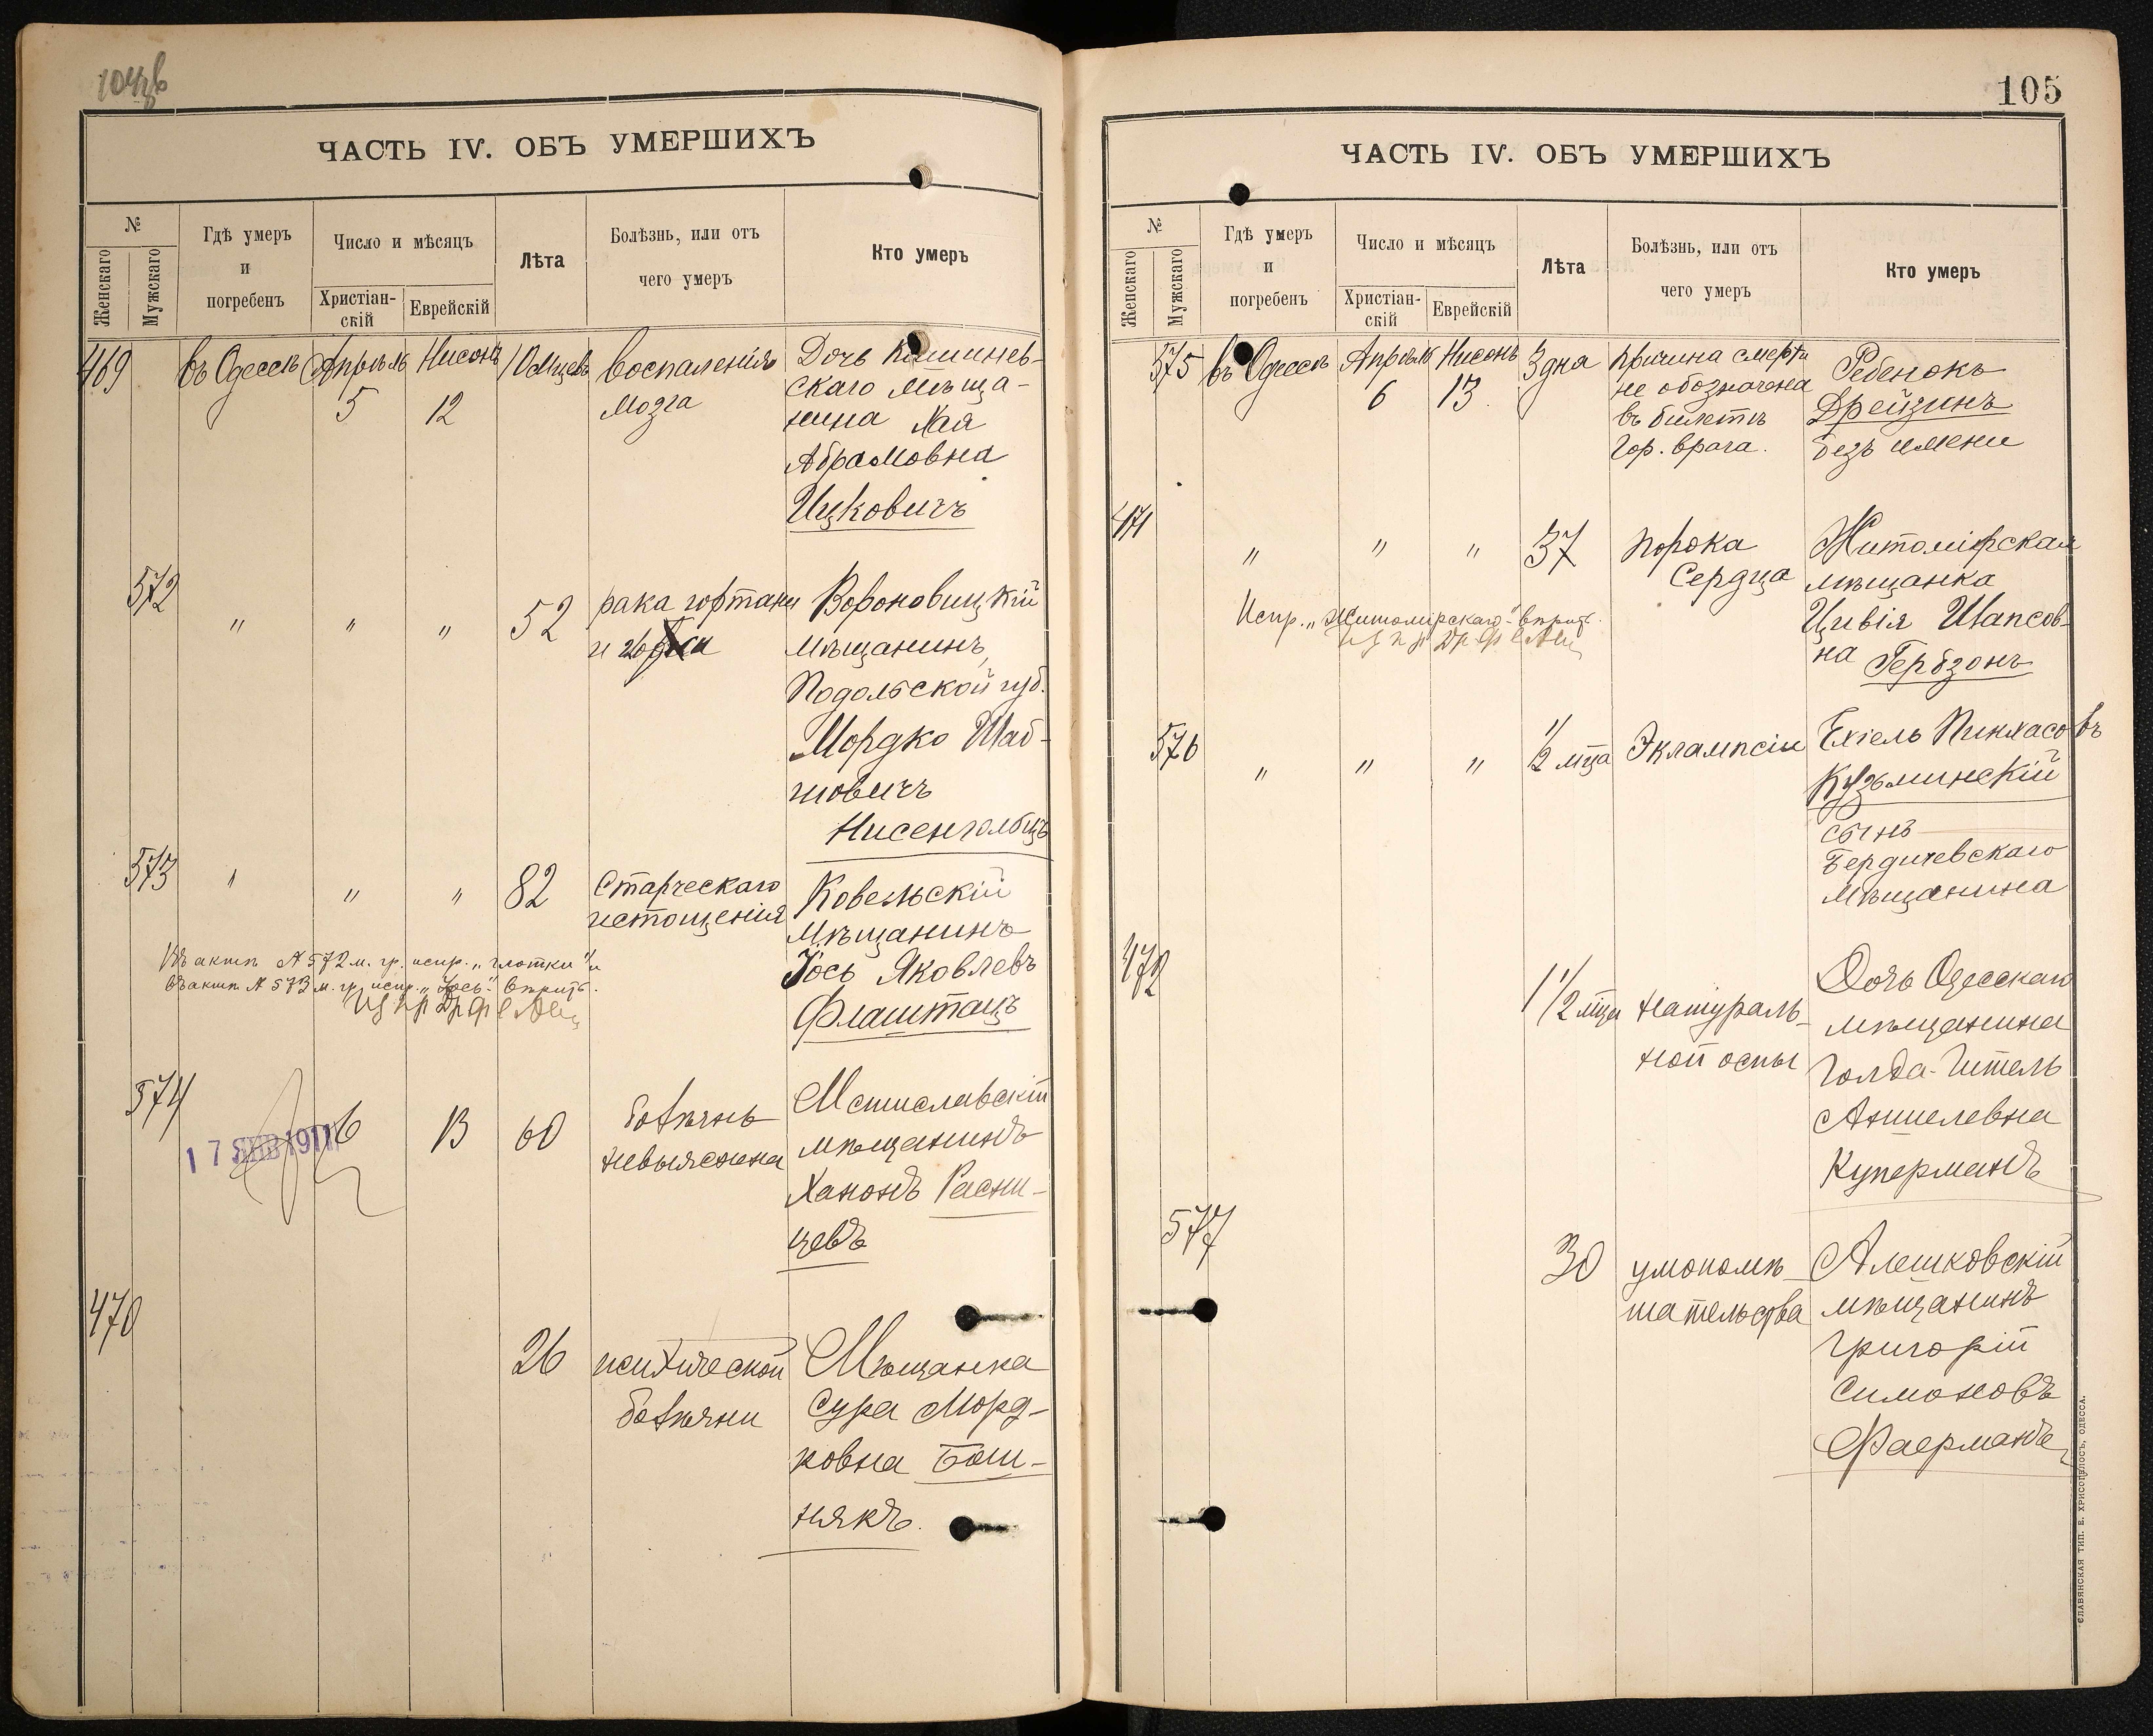 ЧАСТЬ IV. ОБЪ УМЕРШИХЪ
№
Женскаго
Мужскаго
Гдѣ умеръ
и
погребенъ
Число и мѣсяцъ
Христіан-
скій
Еврейскій
Лѣта
Болѣзнь, или отъ
чего умеръ
Кто умеръ
469
въ Одессѣ
Апрѣля
5
Нисонъ
12
10 мцевъ
воспаленія
мозга
Дочь Кишинев-
скаго мѣща-
нина Хая
Абрамовна
Ицковичъ
572
"
"
"
52
рака гортани
и
Вороновицкій
мѣщанинъ,
Подольской губ.
Мордко Шаб-
шовичъ
Нисенгольцъ
573
"
"
"
82
Старческаго
истощенія
Ковельскій
мѣщанинъ
Іось Яковлевъ
Флаштацъ
Въ актѣ № 572 м. гр. испр. „глотки" и
въ актѣ № 573 м. гр. испр. „Іось" вѣрить.
574
17 ЯНВ 1911
6
13
60
болѣзнь
невыяснена
Мстиславскій
мѣщанинъ
Ханонъ Расни-
цевъ
470
26
психической
болѣзни
Мѣщанка
Сура Морд-
ковна Бош-
някъ.
105
ЧАСТЬ IV. ОБЪ УМЕРШИХЪ
№
Женскаго
Мужскаго
Гдѣ умеръ
и
погребенъ
Число и мѣсяцъ
Христіан-
скій
Еврейскій
Лѣта
Болѣзнь, или отъ
чего умеръ
Кто умеръ
575
въ Одессѣ
Апрѣля
6
Нисонъ
13
3 дня
Причина смерти
не обозначена
въ билетѣ
Гор. врача.
Ребенокъ
Дрейзинъ
безъ имени
471
"
"
"
37
порока
Сердца
Житомірская
мѣщанка
Цивія Шапсов-
на Гербзонъ
Испр. „Житомірскаго" вѣрить.
576
"
"
"
1/2 мца
Эклампсіи
Ехіель Пинхасовъ
Кузьминскій
сынъ
Бердичевскаго
мѣщанина
472
1 1/2 мца
натураль-
ной оспы
Дочь Одесскаго
мѣщанина
Голда-Гитель
Аншелевна
Куперманъ
577
30
умопомѣ-
шательства
Алешковскій
мѣщанинъ
Григорій
Симоновъ
Фаерманъ
СЛАВЯНСКАЯ ТИП. Е. ХРИСОГЕЛОСЪ, ОДЕССА.